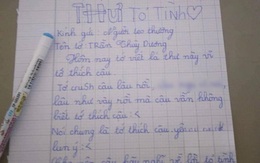 THƯ TỎ TÌNH ♡
Kính gửi: Người tớ thương
Tên tớ Trần Thùy Dương
Hôm nay tớ viết lá thư này vì
tớ thích cậu.
Tớ crush cậu lâu rồi
lâu như vậy rồi mà cậu vẫn không
biết tớ thích cậu :<
Nói chung là tớ thích cậu
lưu ý :<